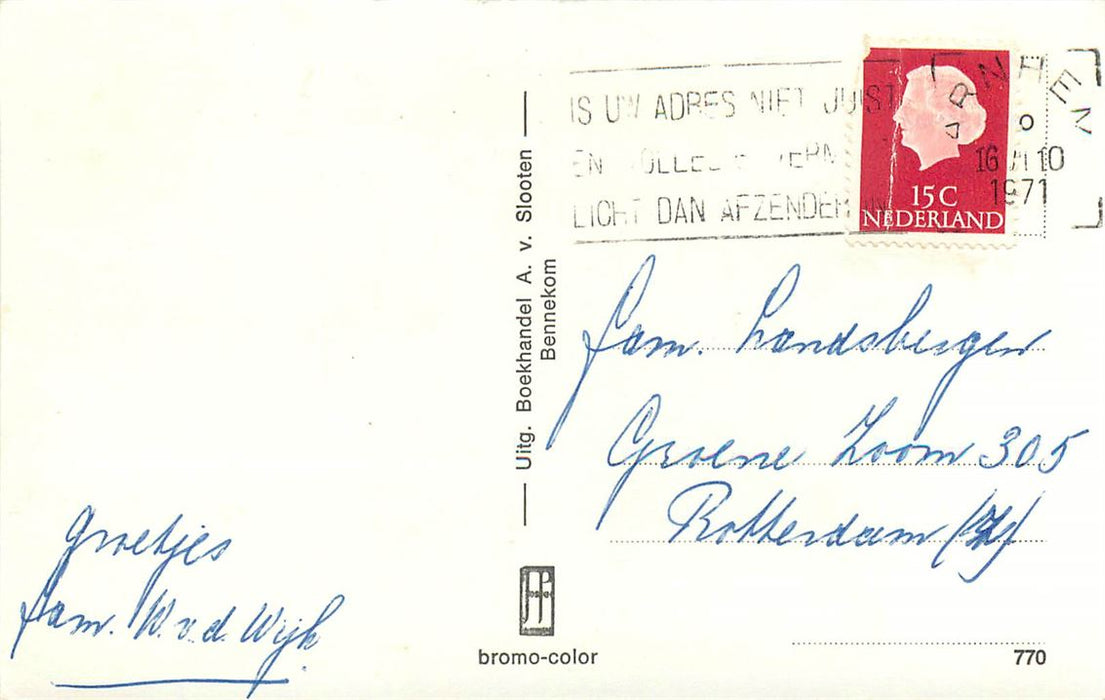 IS UW ADRES NIET JUIST
EN
LICHT DAN AFZENDER IN
ARNHEM
16 VI 10
1971
15 C
NEDERLAND
Uitg. Boekhandel A. v. Slooten
Bennekom
fam. Landsbergen
Groene Zoom 305
Rotterdam (Z)
Groetjes
fam. W. v. d. Wijk
bromo-color
770